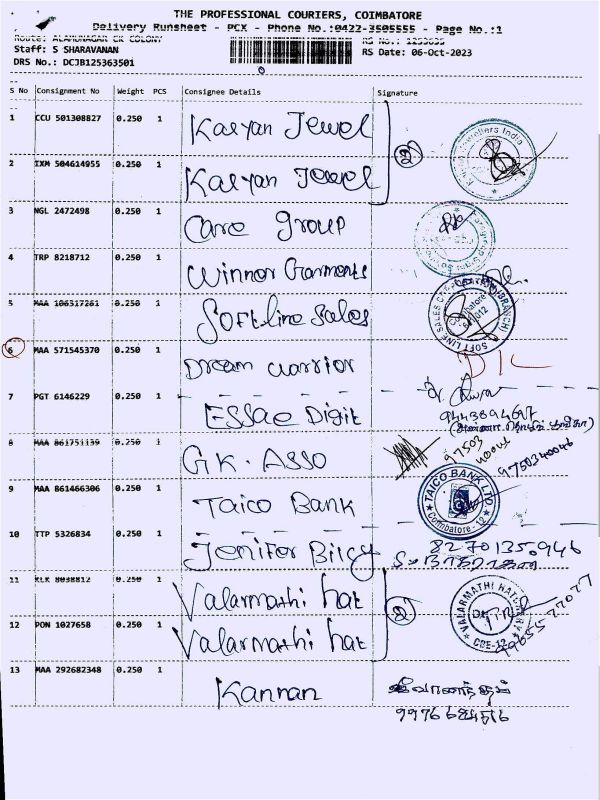 THE PROFESSIONAL COURIERS, COIMBATORE
Delivery Runsheet - PCX - Phone No.:0422-3505555 - Page No.:1
Route: ALAMUNAGAR CK COLONY
Staff: S SHARAVANAN
RS Date: 06-Oct-2023
DRS No.: DCJB125363501
S No Consignment No Weight PCS Consignee Details Signature
1 CCU 501308827 0.250 1 Kalyan Jewel
2 IXM 504614955 0.250 1 Kalyan Jewel
3 NGL 2472498 0.250 1 Care Group
4 TRP 8218712 0.250 1 Winner Garments
5 MAA 106317261 0.250 1 Softline Sales
6 MAA 571545370 0.250 1 Dream warrior
7 PGT 6146229 0.250 1 ESSae Digit
8 MAA 861751139 0.250 1 G.K. Asso
97503
9750340046
9 MAA 861466306 0.250 1 Taico Bank
TAICO BANK LTD
Coimbatore-12
10 TTP 5326834 0.250 1 Jenifer
8270135946
11 KLK 8038812 0.250 1 Valarmathi hat
12 PON 1027658 0.250 1 Valarmathi hat
VALARMATHI HATCHERY
CBE-12
13 MAA 292682348 0.250 1 Kannan